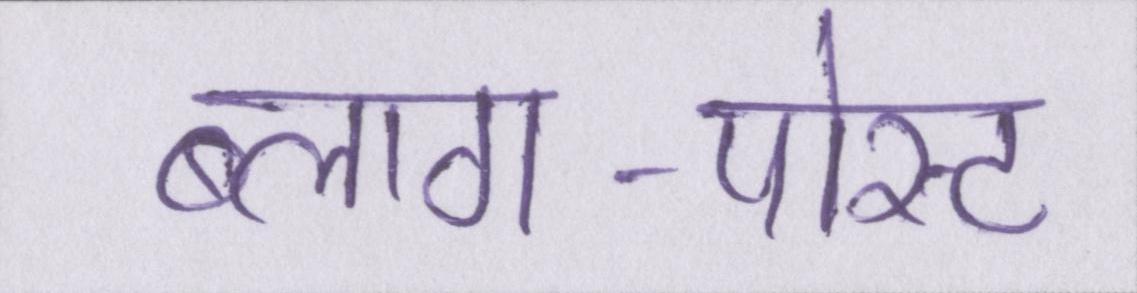 ब्लाग-पोस्ट